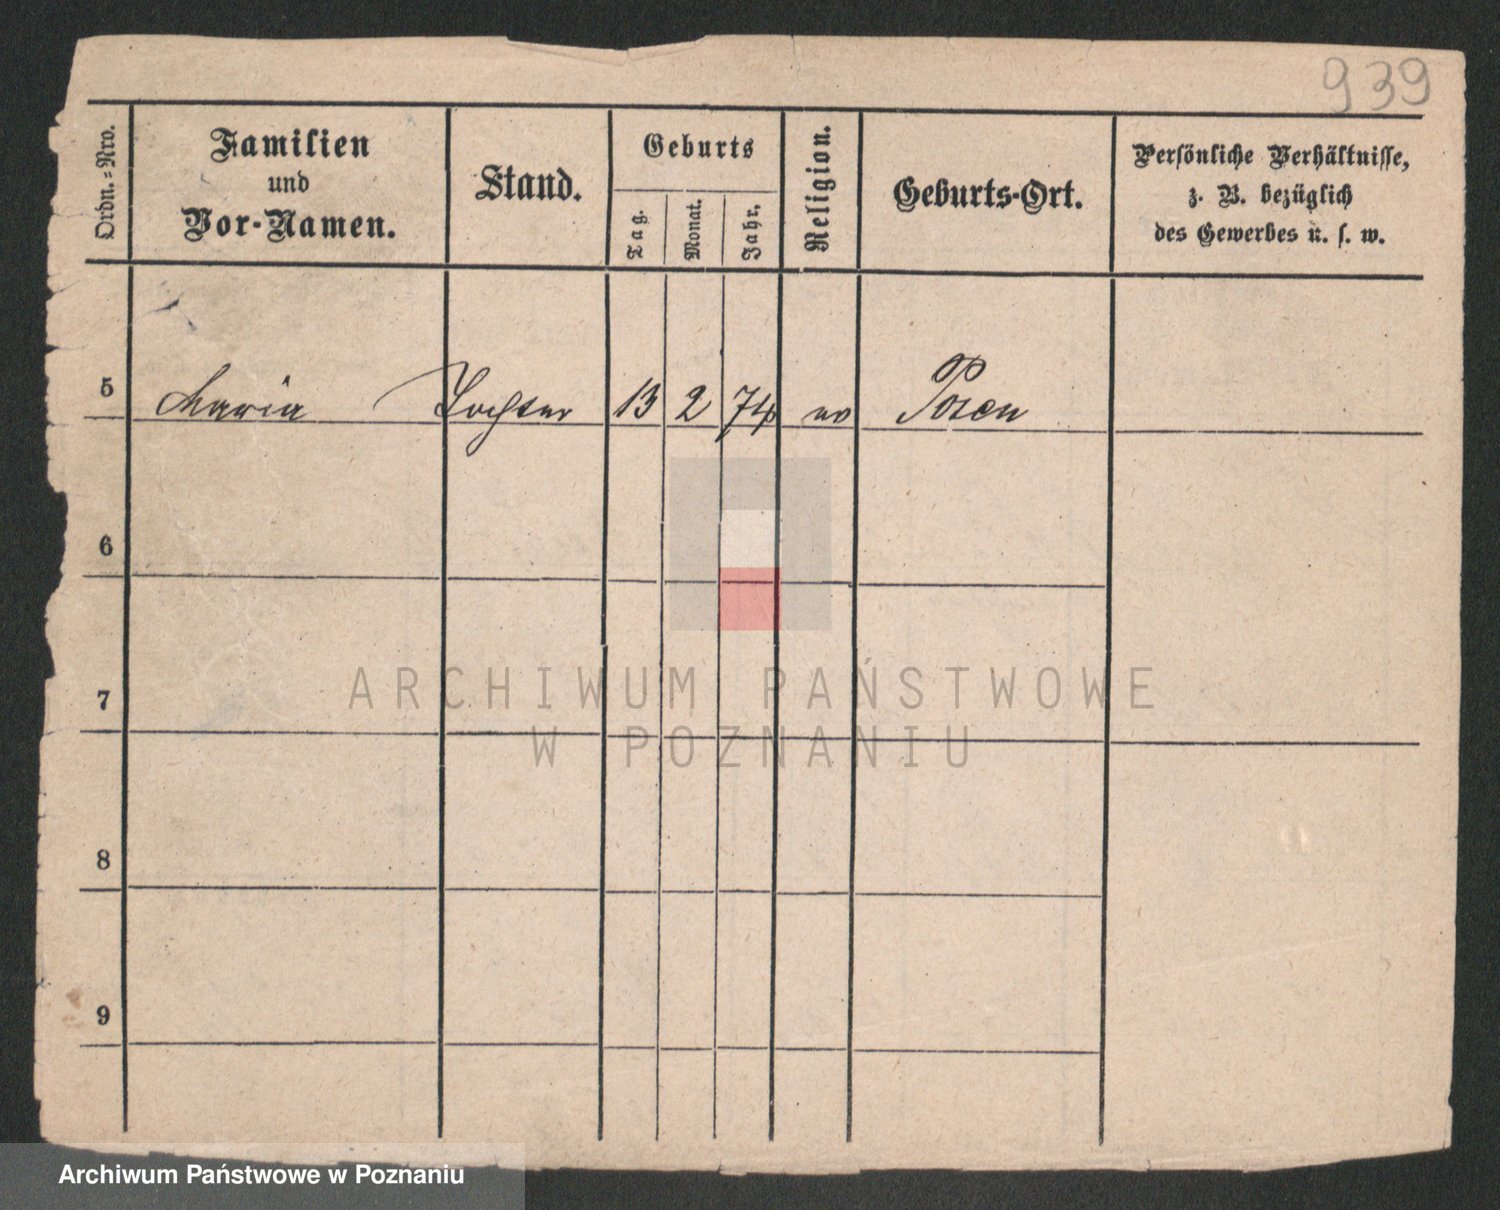 939
Ordn.-Nro.
Familien
und
Vor-Namen.
Stand.
Geburts
Tag.
Monat.
Jahr.
Religion.
Geburts-Ort.
Persönliche Verhältnisse,
z. B. bezüglich
des Gewerbes u. s. w.
5 Maria Tochter 13 2 74 ev Posen
6
7
8
9
ARCHIWUM PAŃSTWOWE
W POZNANIU
Archiwum Państwowe w Poznaniu